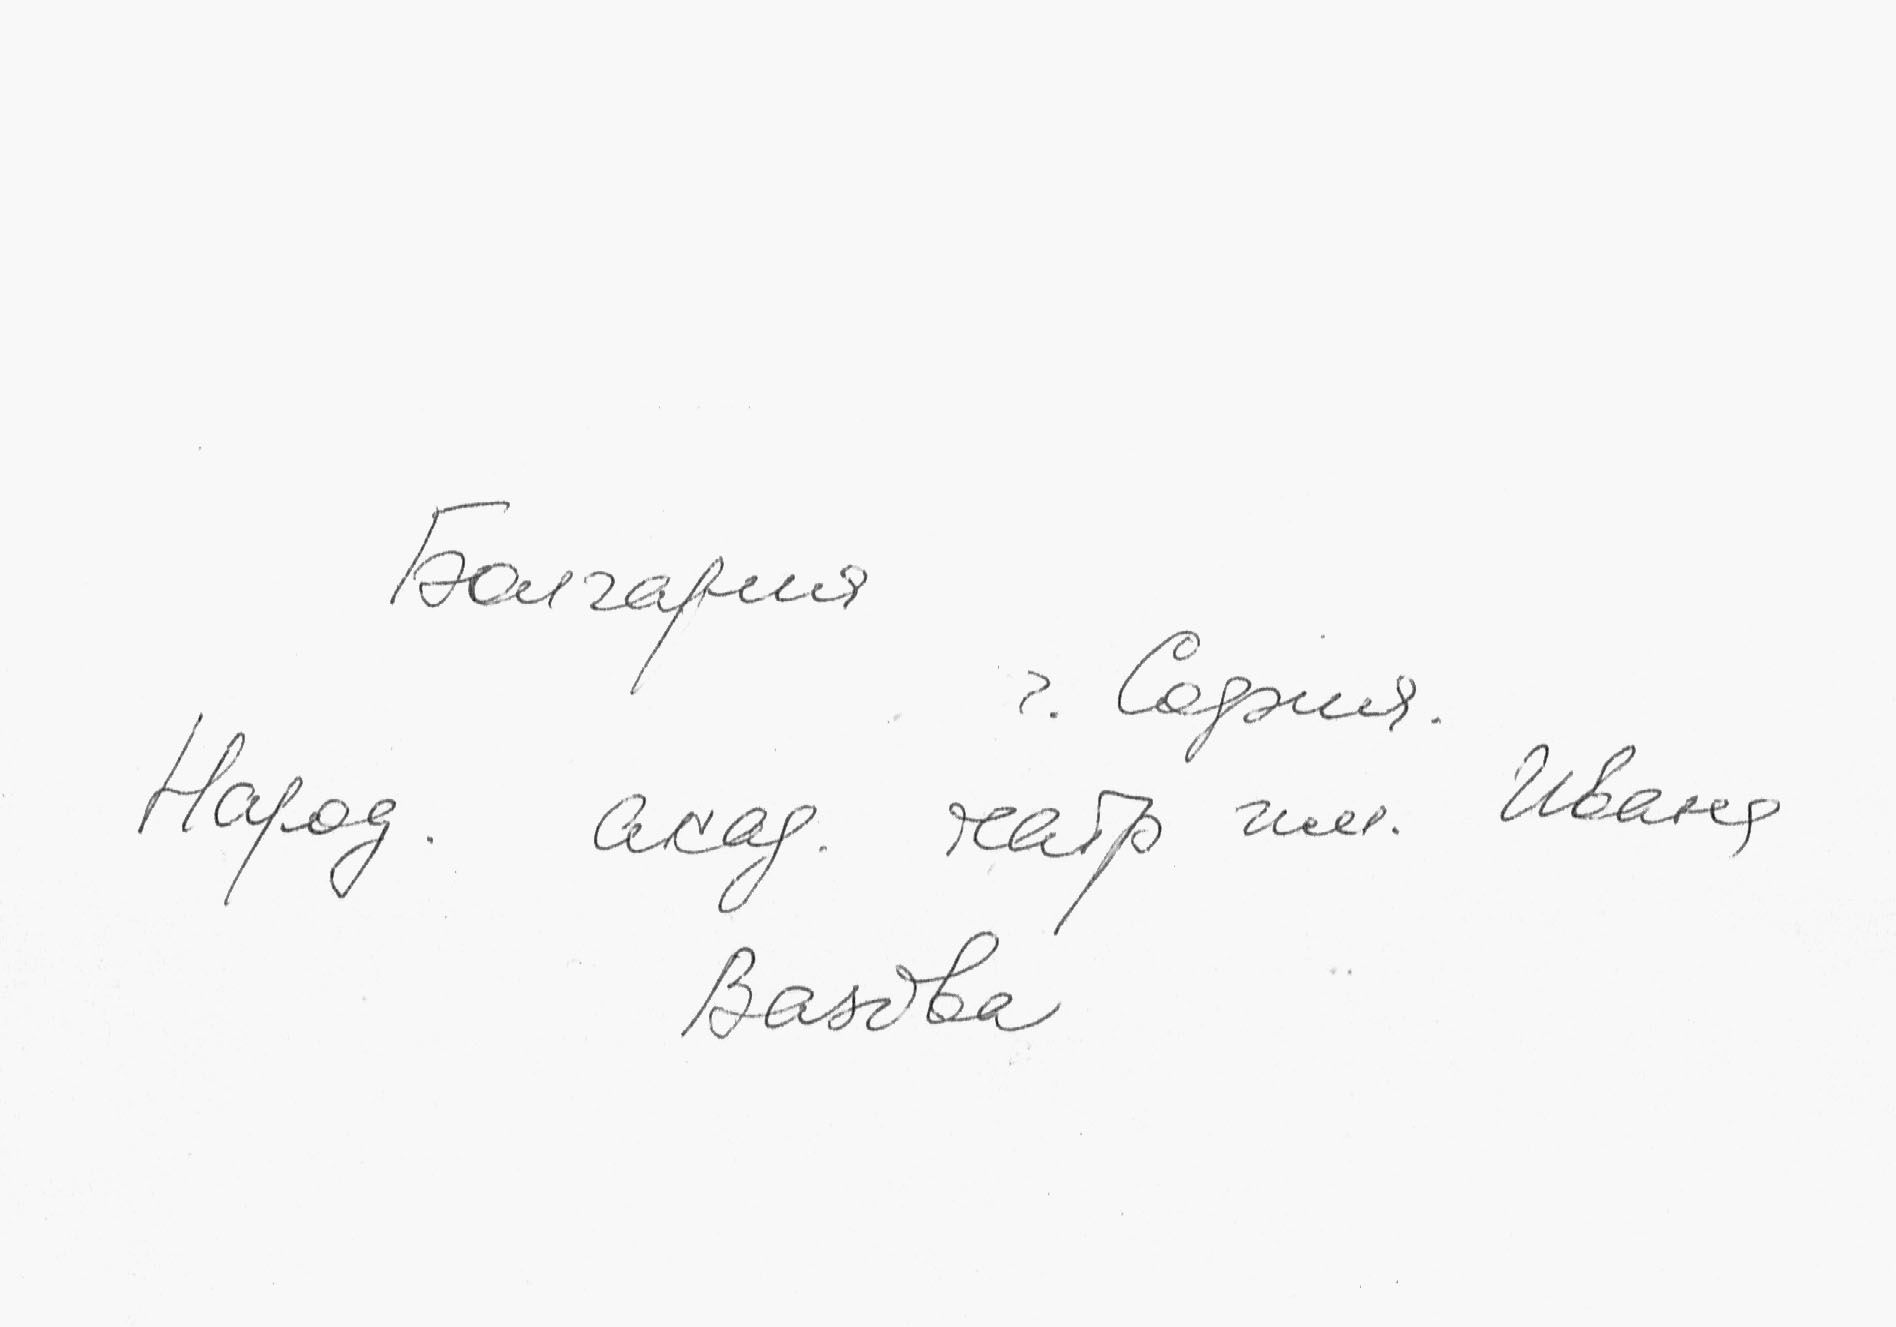 Болгария
г. София.
Народ. акад. театр им. Ивана
Вазова